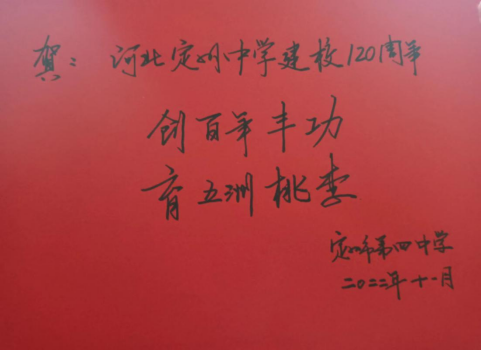 贺：河北定州中学建校120周年
创百年丰功
育五洲桃李
定州市第四中学
二〇二二年十一月